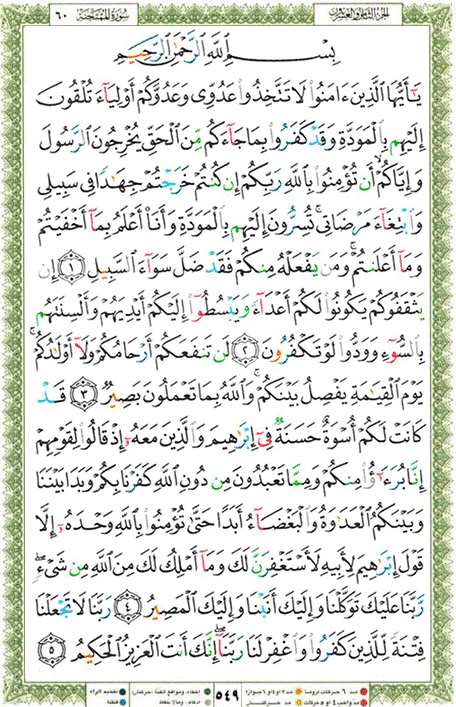 الجزء الثامن والعشرون سورة الممتحنة ٦٠
بِسْمِ ٱللَّهِ ٱلرَّحْمَٰنِ ٱلرَّحِيمِ
يَٰٓأَيُّهَا ٱلَّذِينَ ءَامَنُوا۟ لَا تَتَّخِذُوا۟ عَدُوِّى وَعَدُوَّكُمْ أَوْلِيَآءَ تُلْقُونَ
إِلَيْهِم بِٱلْمَوَدَّةِ وَقَدْ كَفَرُوا۟ بِمَا جَآءَكُم مِّنَ ٱلْحَقِّ يُخْرِجُونَ ٱلرَّسُولَ
وَإِيَّاكُمْ ۙ أَن تُؤْمِنُوا۟ بِٱللَّهِ رَبِّكُمْ إِن كُنتُمْ خَرَجْتُمْ جِهَٰدًا فِى سَبِيلِى
وَٱبْتِغَآءَ مَرْضَاتِى ۚ تُسِرُّونَ إِلَيْهِم بِٱلْمَوَدَّةِ وَأَنَا۠ أَعْلَمُ بِمَآ أَخْفَيْتُمْ
وَمَآ أَعْلَنتُمْ ۚ وَمَن يَفْعَلْهُ مِنكُمْ فَقَدْ ضَلَّ سَوَآءَ ٱلسَّبِيلِ ١ إِن
يَثْقَفُوكُمْ يَكُونُوا۟ لَكُمْ أَعْدَآءً وَيَبْسُطُوٓا۟ إِلَيْكُمْ أَيْدِيَهُمْ وَأَلْسِنَتَهُم
بِٱلسُّوٓءِ وَوَدُّوا۟ لَوْ تَكْفُرُونَ ٢ لَن تَنفَعَكُمْ أَرْحَامُكُمْ وَلَآ أَوْلَٰدُكُمْ ۚ
يَوْمَ ٱلْقِيَٰمَةِ يَفْصِلُ بَيْنَكُمْ ۚ وَٱللَّهُ بِمَا تَعْمَلُونَ بَصِيرٌ ٣ قَدْ
كَانَتْ لَكُمْ أُسْوَةٌ حَسَنَةٌ فِىٓ إِبْرَٰهِيمَ وَٱلَّذِينَ مَعَهُۥٓ إِذْ قَالُوا۟ لِقَوْمِهِمْ
إِنَّا بُرَءَٰٓؤُا۟ مِنكُمْ وَمِمَّا تَعْبُدُونَ مِن دُونِ ٱللَّهِ كَفَرْنَا بِكُمْ وَبَدَا بَيْنَنَا
وَبَيْنَكُمُ ٱلْعَدَٰوَةُ وَٱلْبَغْضَآءُ أَبَدًا حَتَّىٰ تُؤْمِنُوا۟ بِٱللَّهِ وَحْدَهُۥٓ إِلَّا
قَوْلَ إِبْرَٰهِيمَ لِأَبِيهِ لَأَسْتَغْفِرَنَّ لَكَ وَمَآ أَمْلِكُ لَكَ مِنَ ٱللَّهِ مِن شَىْءٍ ۖ
رَّبَّنَا عَلَيْكَ تَوَكَّلْنَا وَإِلَيْكَ أَنَبْنَا وَإِلَيْكَ ٱلْمَصِيرُ ٤ رَبَّنَا لَا تَجْعَلْنَا
فِتْنَةً لِّلَّذِينَ كَفَرُوا۟ وَٱغْفِرْ لَنَا رَبَّنَآ ۖ إِنَّكَ أَنتَ ٱلْعَزِيزُ ٱلْحَكِيمُ ٥
٥٤٩